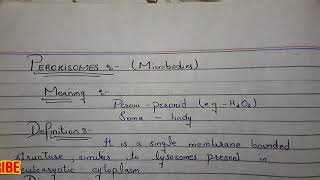 PEROXISOMES :- (Microbodies)
Meaning :-
Peroxi - peroxid (e.g - H₂O₂)
Soma - body
Definition :-
It is a single membrane bounded
structure, similar to lysosomes present in
eukaryotic cytoplasm
RIBE